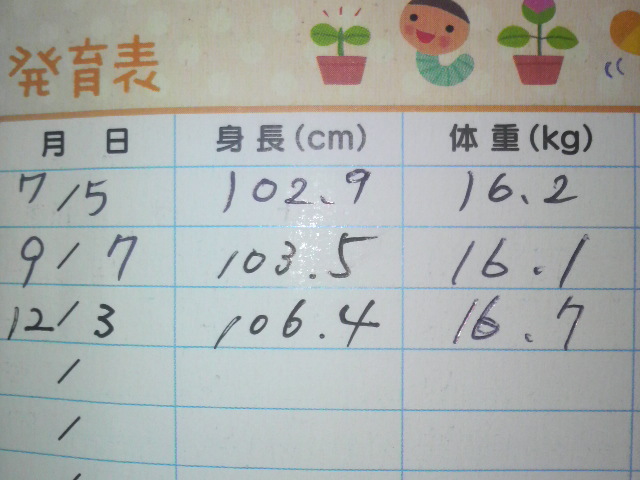 発育表
月 日 身長(cm) 体重(kg)
7/5 102.9 16.2
9/7 103.5 16.1
12/3 106.4 16.7
/
/